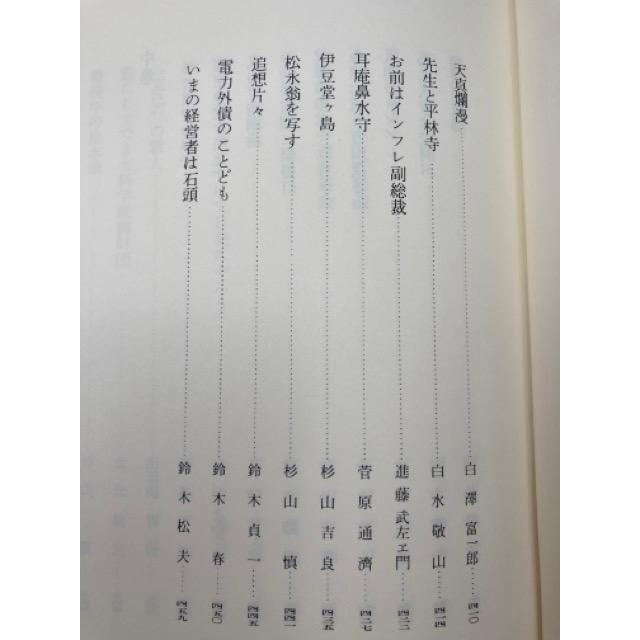 天真爛漫……白澤富一郎……四一〇
先生と平林寺……白水敬山……四一四
お前はインフレ副総裁……進藤武左ヱ門……四二二
耳庵鼻水守……菅原通濟……四二七
伊豆堂ヶ島……杉山吉良……四三五
松永翁を写す……杉山慎……四四一
追想片々……鈴木貞一……四四五
電力外債のことども……鈴木春……四五〇
いまの経営者は石頭……鈴木松夫……四五九